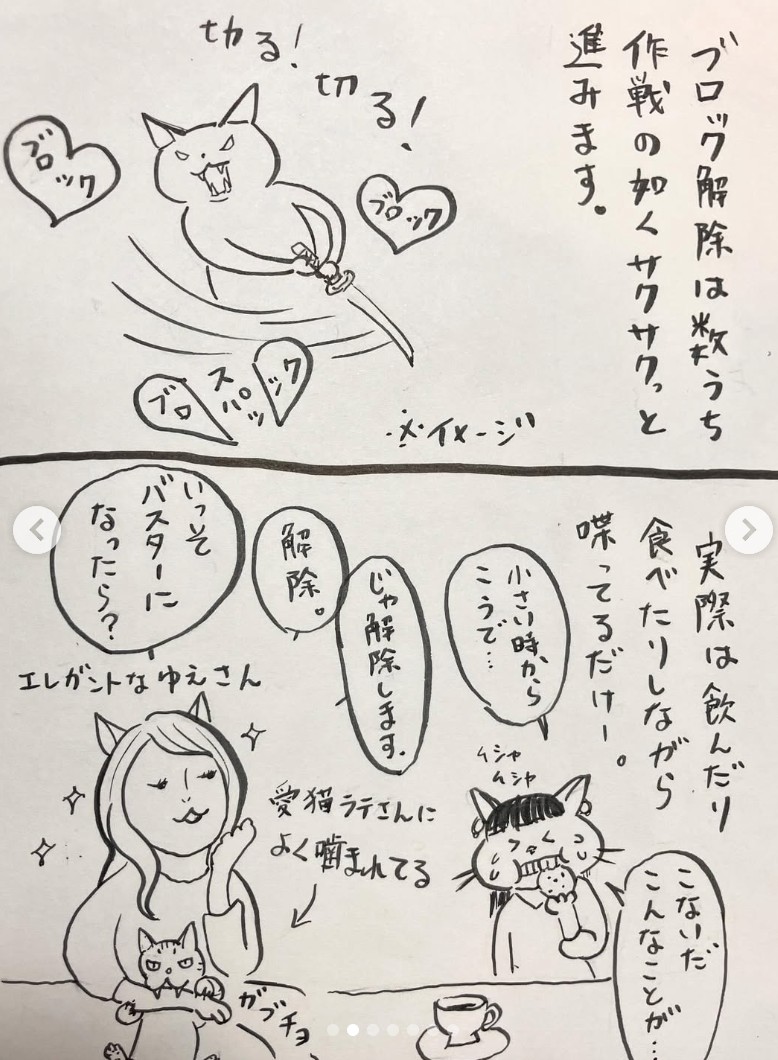 ブロック解除は数うち
作戦の如くサクサクっと
進みます。
切る!
切る!
ブロ
ック
ブロック
ブロ
スパッ
ック
※イメージ
実際は飲んだり
食べたりしながら
喋ってるだけー。
小さい時から
こうで…
じゃ解除します。
解除。
いっそ
バスターに
なったら?
エレガントなゆえさん
ムシャ
ムシャ
愛猫ラテさんに
よく噛まれてる
こないだ
こんなことが…
ガブチョ